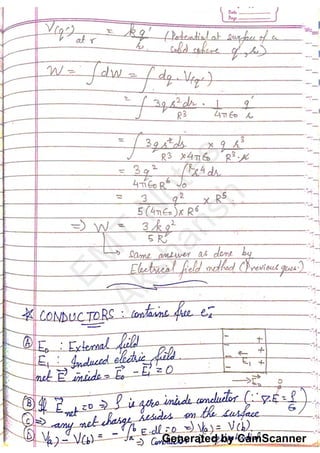 Date
Page
V(q') at r = kq'/r (Potential at surface of a
solid sphere q', r)
W = ∫dW = ∫ dq. V(q')
= ∫ 3qr²dr/R³ . 1/4πε₀ q'/r
= ∫ 3qr²dr/R³ × 4πε₀ × q r³/R³.r
= 3q²/4πε₀R⁶ ∫₀ᴿ r⁴ dr
= 3 q²/5(4πε₀) × R⁶ × R⁵
⇒ W = 3kq²/5R
↳ Same answer as done by
Electrical field method (Previous ques:)
* CONDUCTORS : contains free e⁻s
Ⓐ E₀ : External field
E₁ : Induced electric field
net E⃗ inside = E⃗₀ - E⃗₁ = 0
- +
- +
E₁
→E₀
Ⓑ If E⃗net = 0 ⇒ ρ is zero inside conductor (∵ ∇.E⃗ = ρ/ε₀)
Ⓒ ⇒ any net charge resides on the surface
Ⓓ V(a) - V(b) = -∫ E.dl = 0 ⇒ V(a) = V(b)
Generated by CamScanner